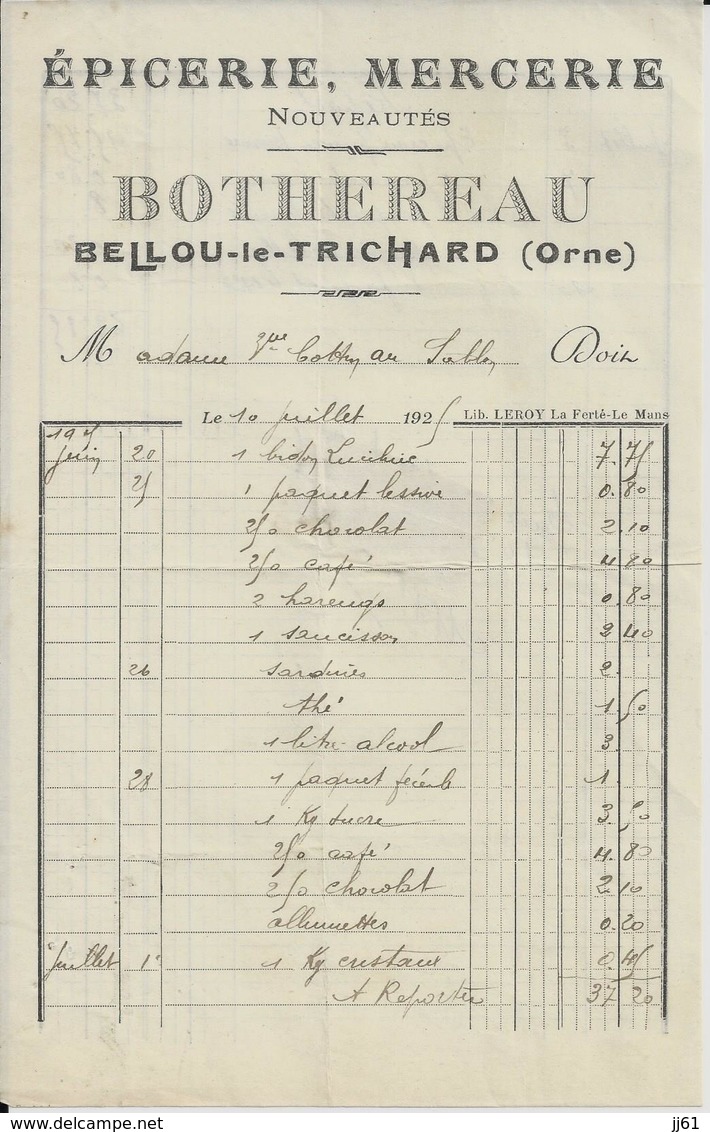 ÉPICERIE, MERCERIE
NOUVEAUTÉS
BOTHEREAU
BELLOU-le-TRICHARD (Orne)
Madame Vve au Doit
Le 10 juillet 1925 Lib. LEROY La Ferté-Le Mans
1925
Juin 20 1 bidon Luciline 7.75
25 1 paquet lessive 0.80
250 chocolat 2.10
250 café 4.80
2 harengs 0.80
1 saucisson 2.40
26 sardines 2.
thé 1.50
1 litre alcool 3.
28 1 paquet fécule 1.
1 Kg sucre 3.50
250 café 4.80
250 chocolat 2.10
allumettes 0.20
Juillet 1 1 Kg cristaux 0.45
A Reporter 37 20
jj61